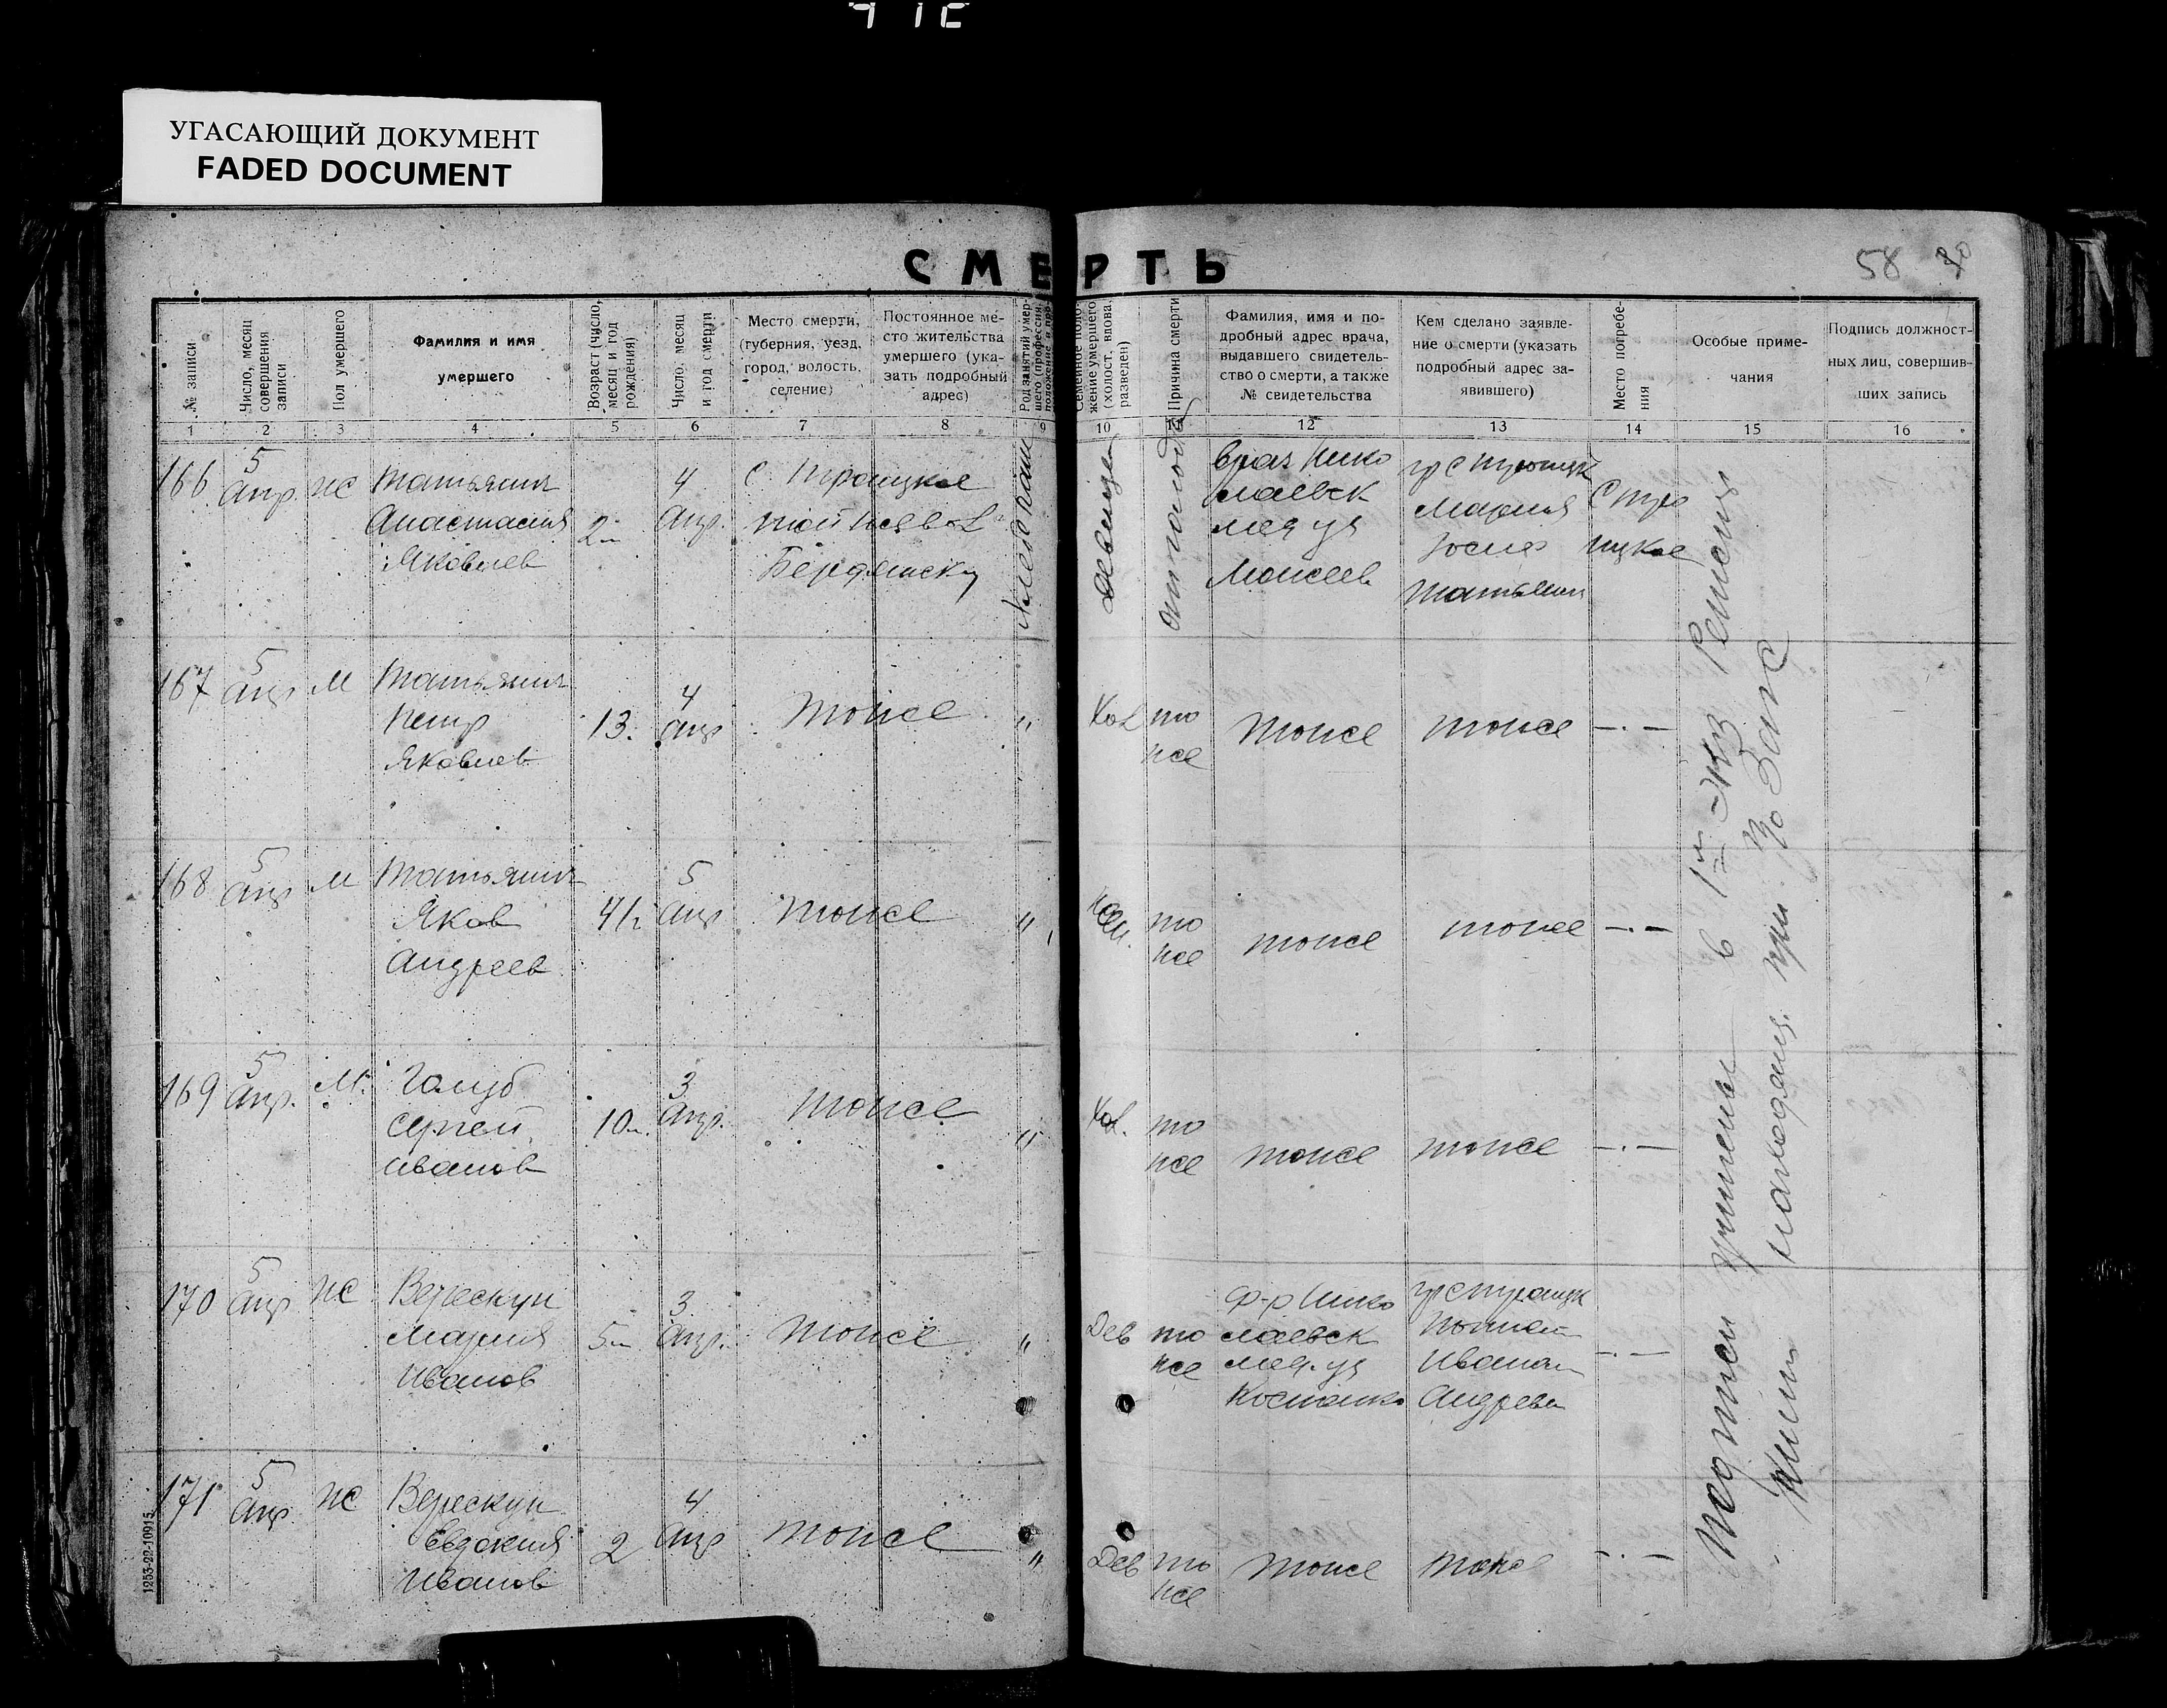 УГАСАЮЩИЙ ДОКУМЕНТ
FADED DOCUMENT
СМЕРТЬ
58
№ записи
Число, месяц
совершения
записи
Пол умершего
Фамилия и имя
умершего
Возраст (число,
месяц и год
рождения)
Число, месяц
и год смерти
Место смерти,
(губерния, уезд,
город, волость,
селение)
Постоянное ме-
сто жительства
умершего (ука-
зать подробный
адрес)
Род занятий умер-
шего (профессия,
положение в про-
Семейное поло-
жение умершего
(холост, вдова,
разведен)
Причина смерти
Фамилия, имя и по-
дробный адрес врача,
выдавшего свидетель-
ство о смерти, а также
№ свидетельства
Кем сделано заявле-
ние о смерти (указать
подробный адрес за-
явившего)
Место погребе-
ния
Особые приме-
чания
Подпись должност-
ных лиц, совершив-
ших запись
1 2 3 4 5 6 7 8 9 10 12 13 14 15 16
166
5
Апр
ж
Татьянин
Анастасия
Яковлев
2
4
Апр.
с Троицкое
той же вол
Бердянск у
Хлебопаш
Девица
От голода
врач Нико
лаевск
мед уч
Моисеев
гр с Троицк
Мария
Татьянин
С Тро
ицкое
167
5
Апр
М
Татьянин
Петр
Яковлев
13.
4
Апр
тоже
"
Хол
то
же
тоже
тоже
—·—
168
5
Апр
М
Татьянин
Яков
Андреев
41
5
Апр
тоже
"
то
же
тоже
тоже
—·—
169
5
Апр.
М.
Голуб
Сергей
Иванов
10
3
Апр.
тоже
"
Хол.
то
же
тоже
тоже
—·—
170
5
Апр
ж
Верескун
Мария
Иванов
5
3
Апр.
тоже
"
Дев
то
же
ф-р Нико
лаевск
мед. уч
Костенко
гр с Троицк
Иванов
Андреев
—·—
171
5
Апр
ж
Верескун
Евдокия
Иванов
2
4
Апр
тоже
"
Дев
то
же
тоже
тоже
—·—
в 1м экз
при
Загс
1253-22-10915